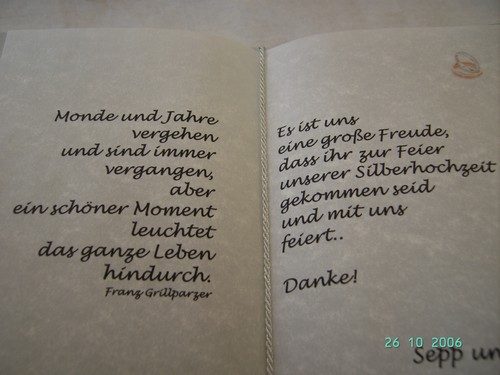 Monde und Jahre
vergehen
und sind immer
vergangen,
aber
ein schöner Moment
leuchtet
das ganze Leben
hindurch.
Franz Grillparzer
Es ist uns
eine große Freude,
dass ihr zur Feier
unserer Silberhochzeit
gekommen seid
und mit uns
feiert..
Danke!
Sepp un
26 10 2006